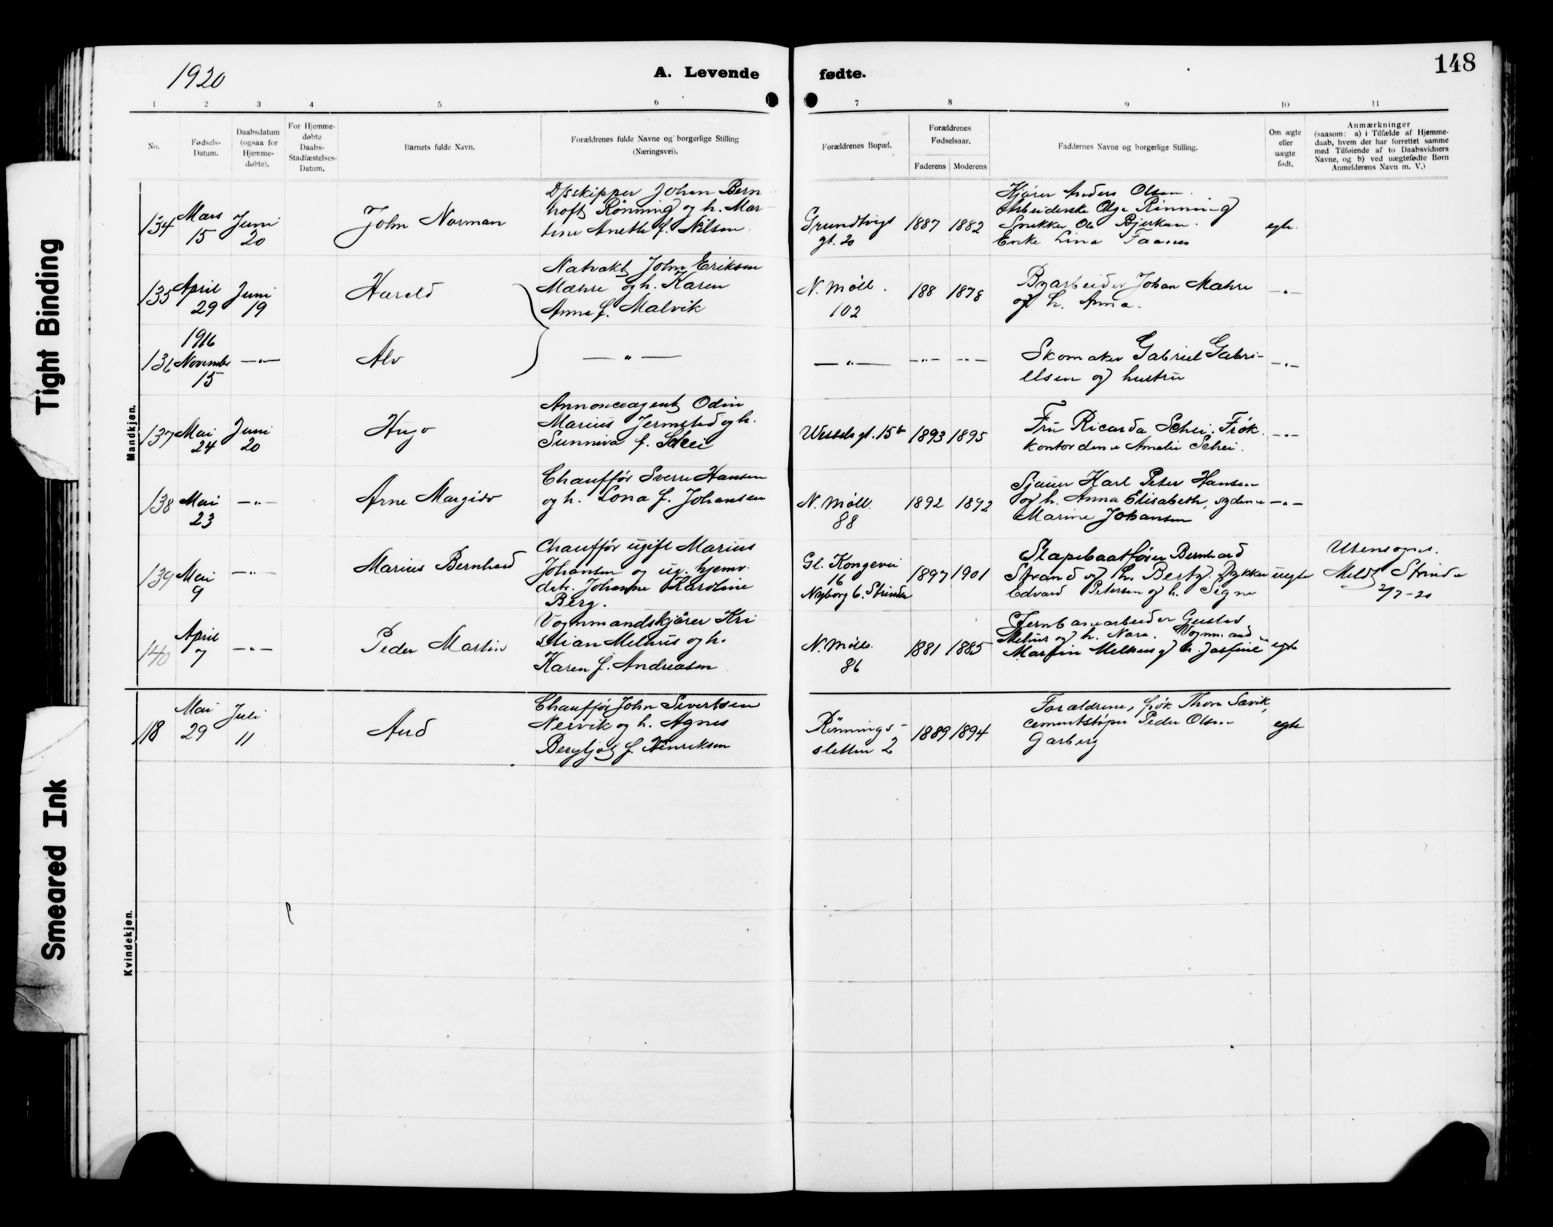 1920
A. Levende fødte.
148
1 2 3 4 5 6 7 8 9 10 11
No.
Fødsels-
Datum.
Daabsdatum
(ogsaa for
Hjemme-
døbte).
For Hjemme-
døbte
Daabs-
Stadfæstelses-
Datum.
Barnets fulde Navn.
Forældrenes fulde Navne og borgerlige Stilling
(Næringsvei).
Forældrenes Bopæl.
Forældrenes
Fødselsaar.
Faderens Moderens
Faddernes Navne og borgerlige Stilling.
Om ægte
eller
uægte
født.
Anmærkninger
(saasom: a) i Tilfælde af Hjemme-
daab, hvem der har forrettet samme
med Tilføiende af to Daabsvidners
Navne, og b) ved uægtefødte Børn
Anmelderens Navn m. V.)
Mandkjøn.
134
Mars
15
Juni
20
John Norman
D/skipper Johan Bern
hoft Rønning og h. Mar-
tine Anette f. Nilsen
Grundtvigs
gt. 20
1887 1882
Kjører Anders Olsen.
Arbeiderske Olga Rønning
Snekker Ole Bjerkan.
Enke Lina Faanes
egte
135
April
29
Juni
19
Harald
Natvakt John Eriksen
Mæhre og h. Karen
Anna f. Malvik
N. Møll.
102
188 1878
Byarbeider Johan Mæhre
og h. Anna.
-"-
136
1916
November
15
-"-
Alv
-"-
-"-
-"- -"-
Skomaker Gabriel Gabri-
elsen og hustru
-"-
137
Mai
24
Juni
20
Hugo
Annonceagent Odin
Marius Jermstad og h.
Sunniva f. Schei
Wesselsgt. 15b
1893 1895
Fru Ricarda Schei. Frøk.
kontordame Amalie Schei.
-"-
138
Mai
23
-"-
Arne Margido
Chauffør Sverre Hansen
og h. Lona f. Johansen
N. Møll.
88
1892 1892
Sjauer Karl Peter Hansen
og h. Anna Elisabeth, sydame
Marine Johansen
-"-
139
Mai
9
-"-
Marius Bernhard
Chauffør ugift Marius
Johansen og ug. hjemv.
dtr. Johanne Karoline
Berg.
Gl. Kongevei
16
Nyborg b. Strinda
1897 1901
Slæpebaatfører Bernhard
Strand og h. Berty. Dykker
Edvard Petersen og h. Signe
uegte
Utensogns.
Meldt Strinda
2/7-20
140
April
7
-"-
Peder Martin
Vognmandskjører Kri
stian Melhus og h.
Karen f. Andreasen
N. Møll.
86
1881 1885
Jernbanearbeider Gustav
Melhus og h. Nora. Vognmand
Martin Melhus og h. Josfine
egte
Kvindekjøn.
118
Mai
29
Juli
11
Aud
Chauffør John Sivertsen
Nervik og h. Agnes
Bergljot f. Henriksen
Rønnings-
sletten 2
1889 1894
Forældrene, frøk Thora Sævik,
cementstøper Peder Olsen
Garberg
egte
Tight Binding
Smeared Ink